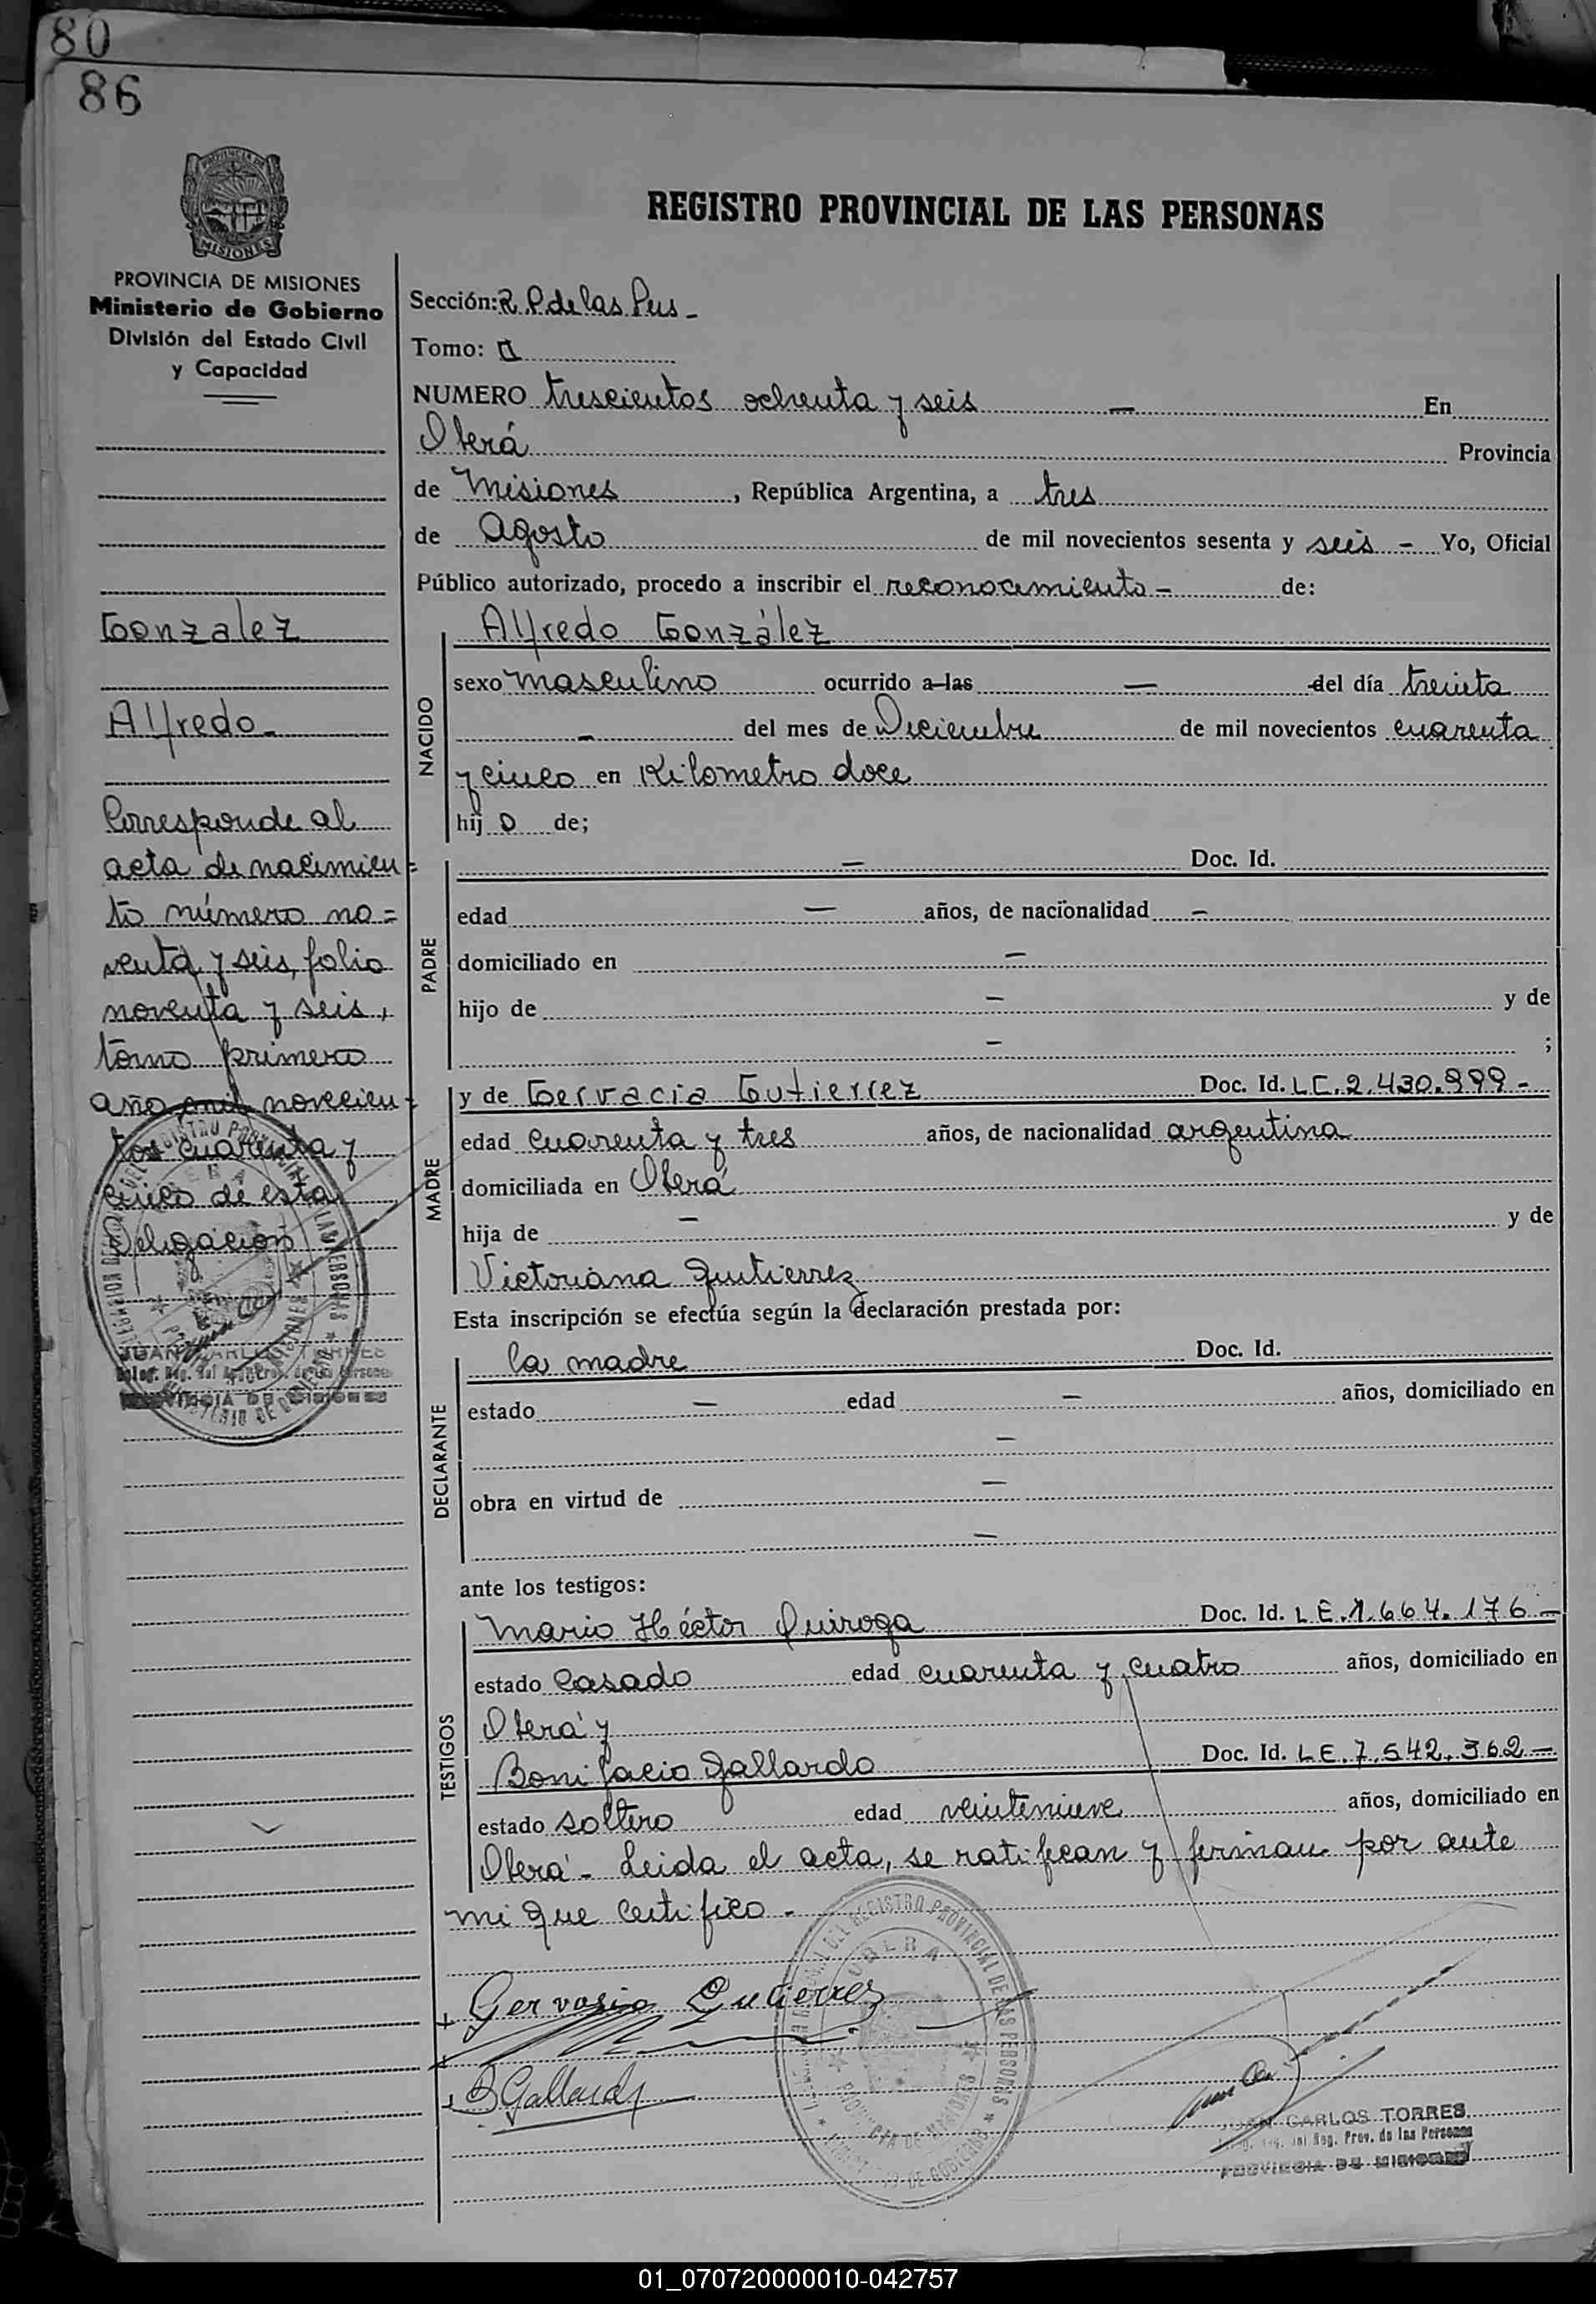 80
86
PROVINCIA DE MISIONES
Ministerio de Gobierno
División del Estado Civil
y Capacidad
Gonzalez
Alfredo -
Corresponde al
acta de nacimien=
to número no=
venta y seis, folio
noventa y seis,
tomo primero
año mil novecien-
tos cuarenta y
cinco de esta
Delegación
JUAN CARLOS TORRES
PROVINCIA DE MISIONES
REGISTRO PROVINCIAL DE LAS PERSONAS
Sección: R. P. de las Pers -
Tomo: II
NUMERO trescientos ochenta y seis — En
Oberá Provincia
de Misiones, República Argentina, a tres
de Agosto de mil novecientos sesenta y seis - Yo, Oficial
Público autorizado, procedo a inscribir el reconocimiento - de:
NACIDO
Alfredo González
sexo masculino ocurrido a las — del día treinta
- del mes de Diciembre de mil novecientos cuarenta
y cinco en Kilometro doce
hij o de;
PADRE
— Doc. Id.
edad — años, de nacionalidad -
domiciliado en —
hijo de — y de
— ;
MADRE
y de Gervacia Gutierrez Doc. Id. L.C. 2.430.999 -
edad cuarenta y tres años, de nacionalidad argentina
domiciliada en Oberá
hija de — y de
Victoriana Gutierrez
Esta inscripción se efectúa según la declaración prestada por:
DECLARANTE
la madre Doc. Id.
estado — edad — años, domiciliado en
—
obra en virtud de —
—
ante los testigos:
TESTIGOS
Mario Héctor Quiroga Doc. Id. L.E. 1.664.176 -
estado Casado edad cuarenta y cuatro años, domiciliado en
Oberá y
Bonifacio Gallardo Doc. Id. L.E. 7.542.362 -
estado soltero edad veintenueve años, domiciliado en
Oberá - Leida el acta, se ratifican y firman por ante
mi que certifico -
Gervasia Gutierrez
B Gallardo
OBERA
JUAN CARLOS TORRES
Reg. Prov. de las Personas
PROVINCIA DE MISIONES
01_070720000010-042757